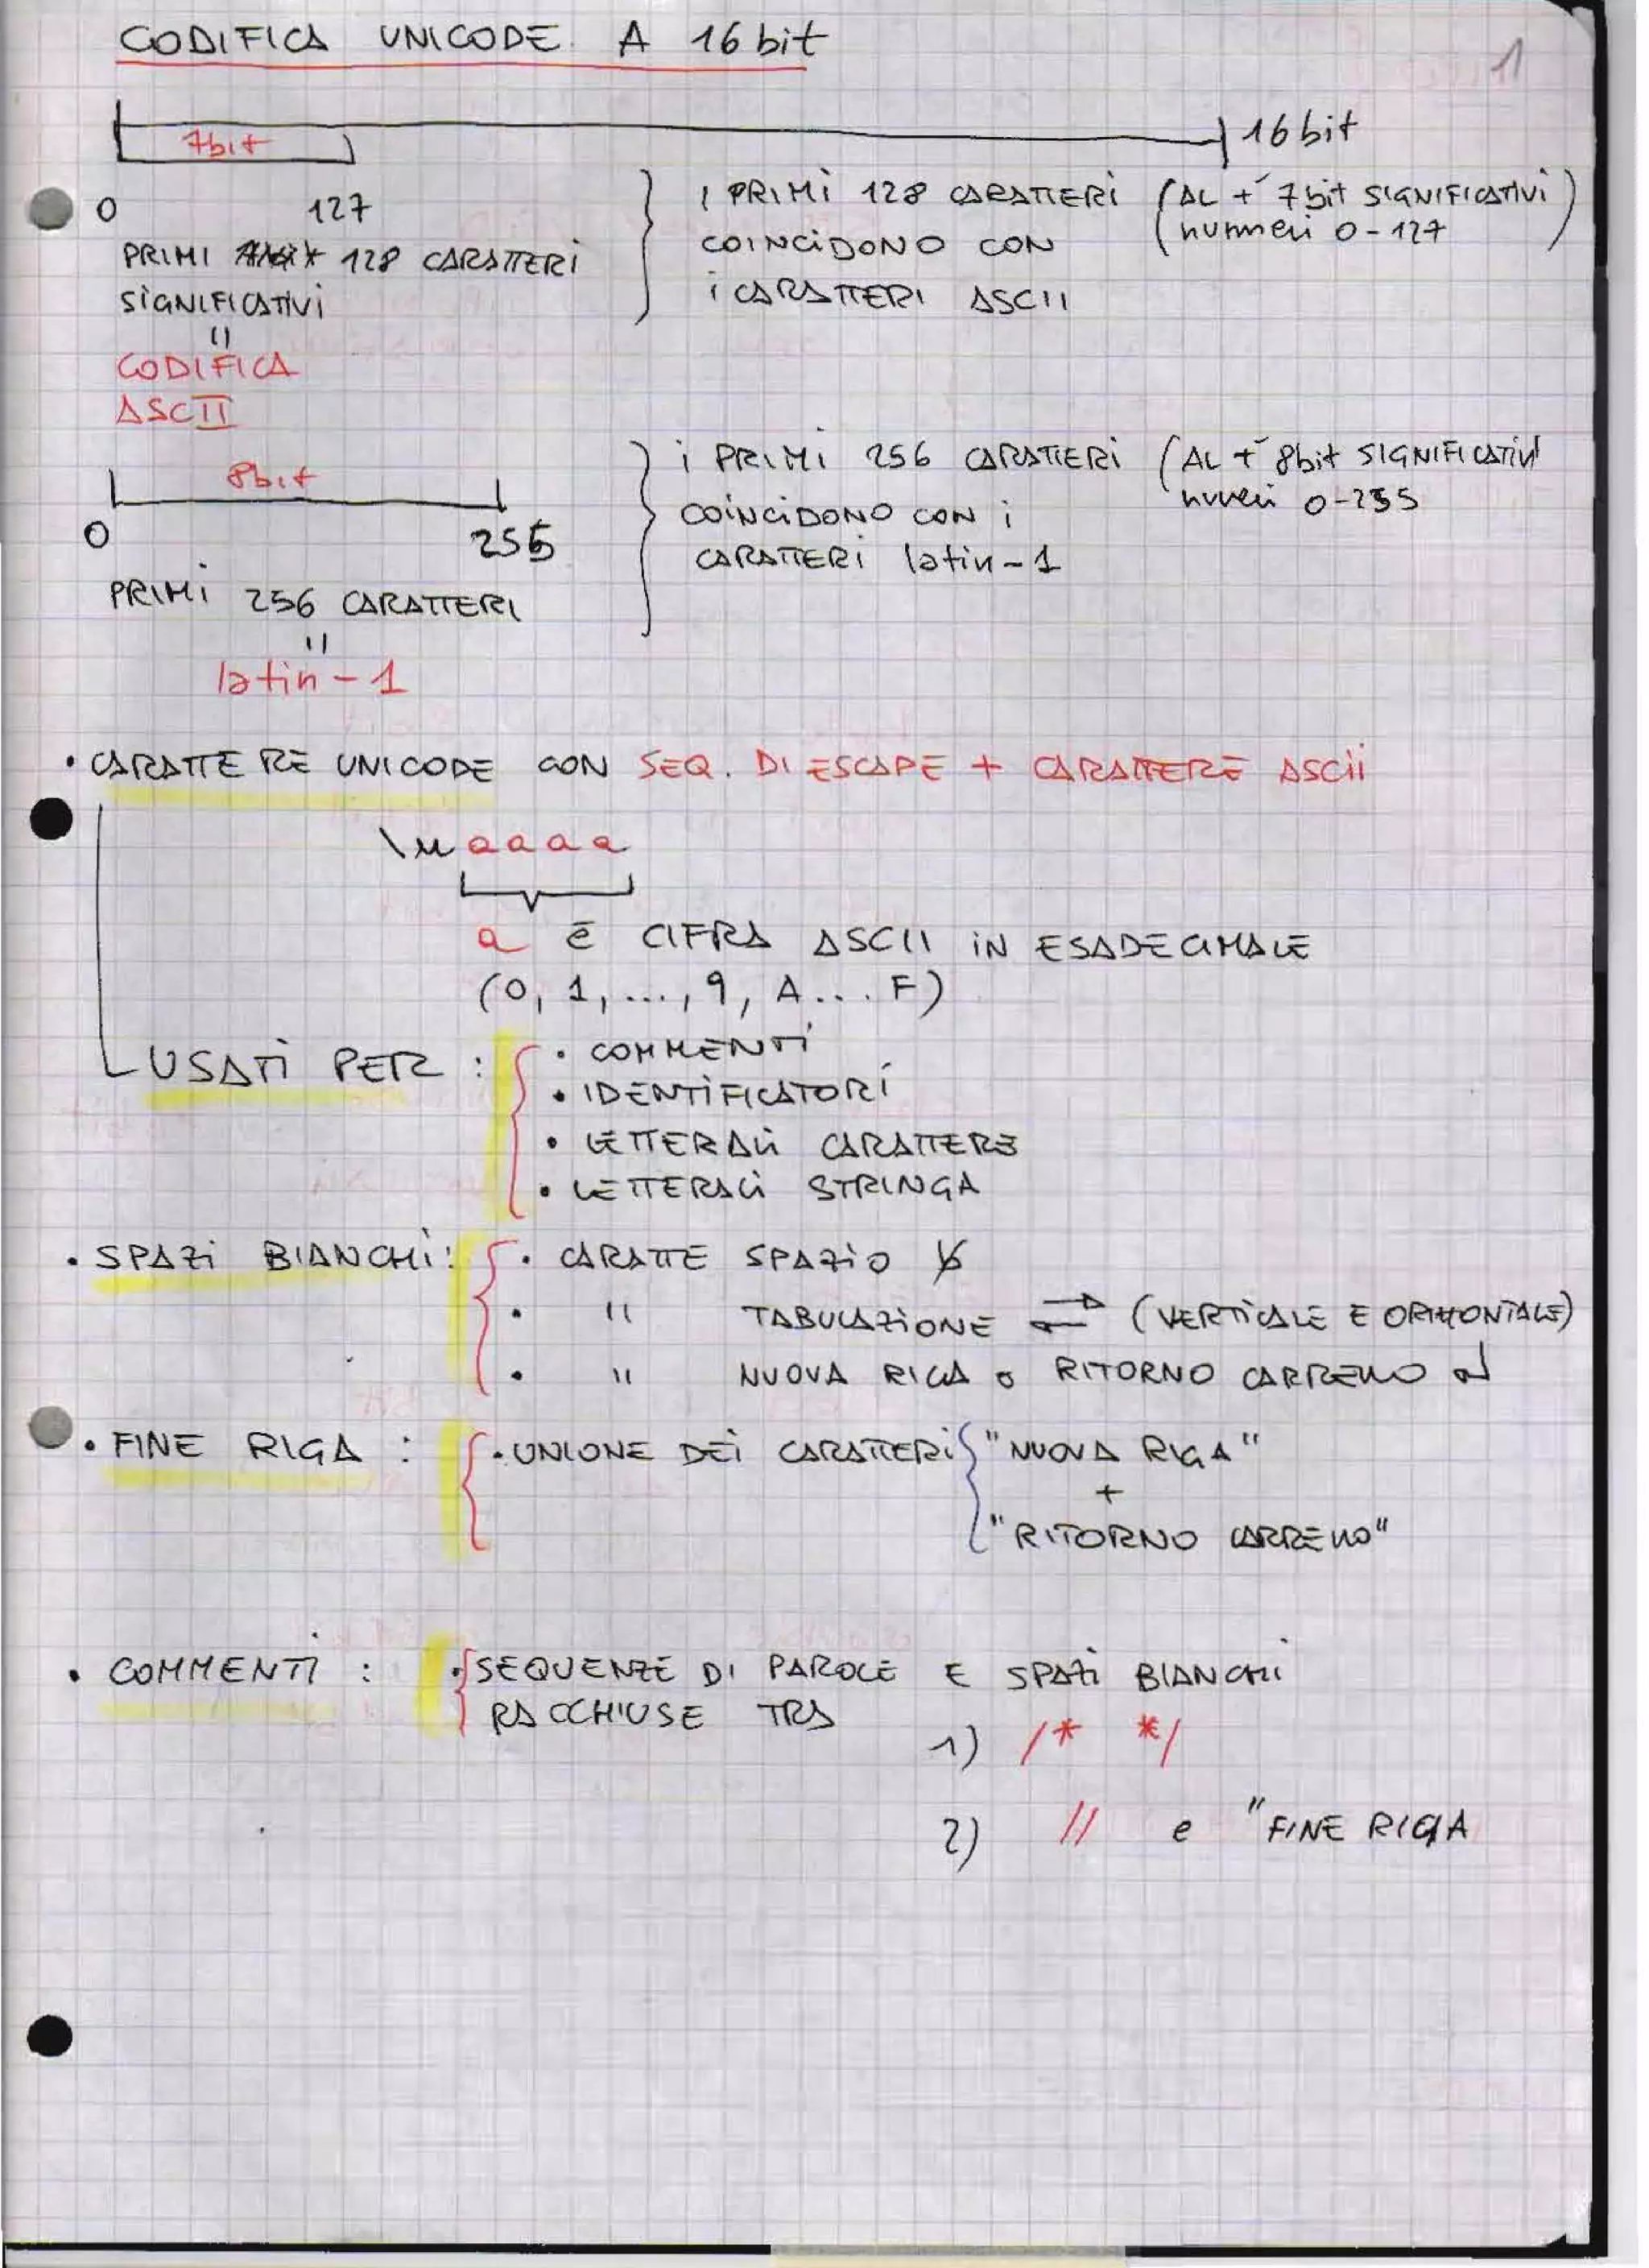 CODIFICA UNICODE A 16 bit
1
7bit
16 bit
0 127
PRIMI 128 CARATTERI
SIGNIFICATIVI
"
CODIFICA
ASCII
I PRIMI 128 CARATTERI (AL + 7 bit SIGNIFICATIVI
numeri 0-127)
COINCIDONO CON
i CARATTERI ASCII
8bit
0 255
PRIMI 256 CARATTERI
"
latin-1
i PRIMI 256 CARATTERI (AL + 8bit SIGNIFICATIVI
numeri 0-255
COINCIDONO CON i
CARATTERI latin-1
• CARATTERE UNICODE CON SEQ. DI ESCAPE + CARATTERE ASCII
\uaaaa
a è CIFRA ASCII IN ESADECIMALE
(0, 1, ..., 9, A... F)
USATI PER :
• COMMENTI
• IDENTIFICATORI
• LETTERALI CARATTERE
• LETTERALI STRINGA
• SPAZI BIANCHI: • CARATTE SPAZIO b
• " TABULAZIONE ⇄ (VERTICALE E ORIZZONTALE)
• " NUOVA RIGA o RITORNO CARRELLO
• FINE RIGA : • UNIONE DEI CARATTERI "NUOVA RIGA"
+
"RITORNO CARRELLO"
• COMMENTI : • SEQUENZE DI PAROLE E SPAZI BIANCHI
RACCHIUSE TRA
1) /* */
2) // e "FINE RIGA